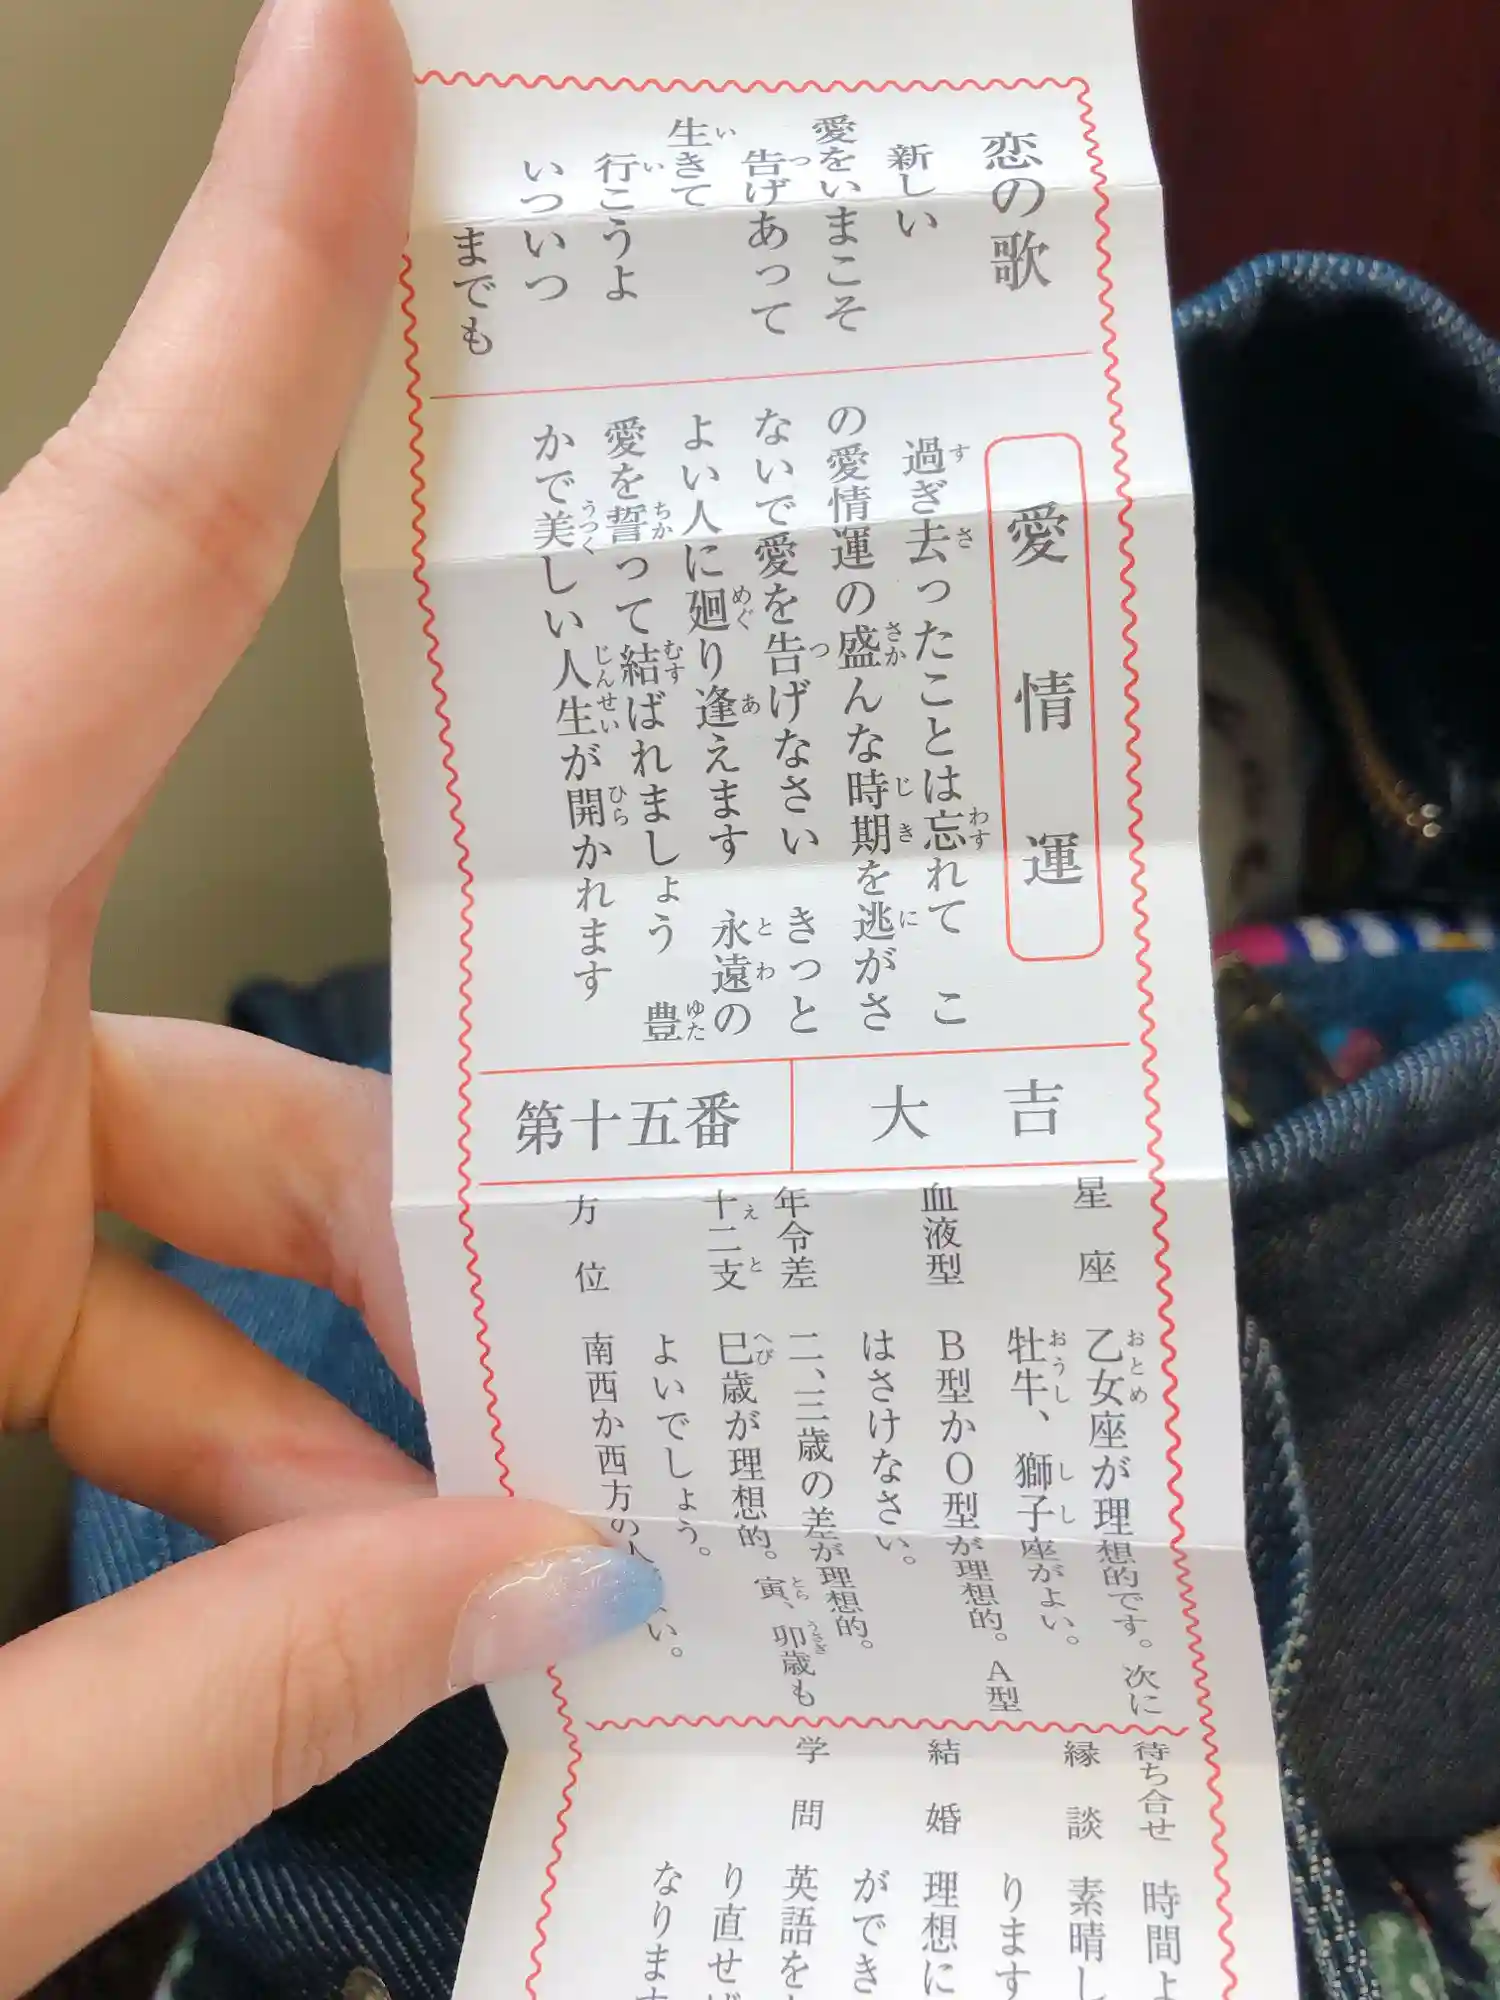 恋の歌
新しい
愛をいまこそ
告げあって
生きて
行こうよ
いついつ
までも
愛情運
過ぎ去ったことは忘れて こ
の愛情運の盛んな時期を逃がさ
ないで愛を告げなさい きっと
よい人に廻り逢えます 永遠の
愛を誓って結ばれましょう 豊
かで美しい人生が開かれます
大吉
第十五番
星座 乙女座が理想的です。次に
牡牛、獅子座がよい。
血液型 B型かO型が理想的。A型
はさけなさい。
年令差 二、三歳の差が理想的。
十二支 巳歳が理想的。寅、卯歳も
よいでしょう。
方位 南西か西方の人 い。
待ち合せ 時間よ
縁談 素晴し
ります
結婚 理想に
ができ
学問 英語を
り直せば
なります